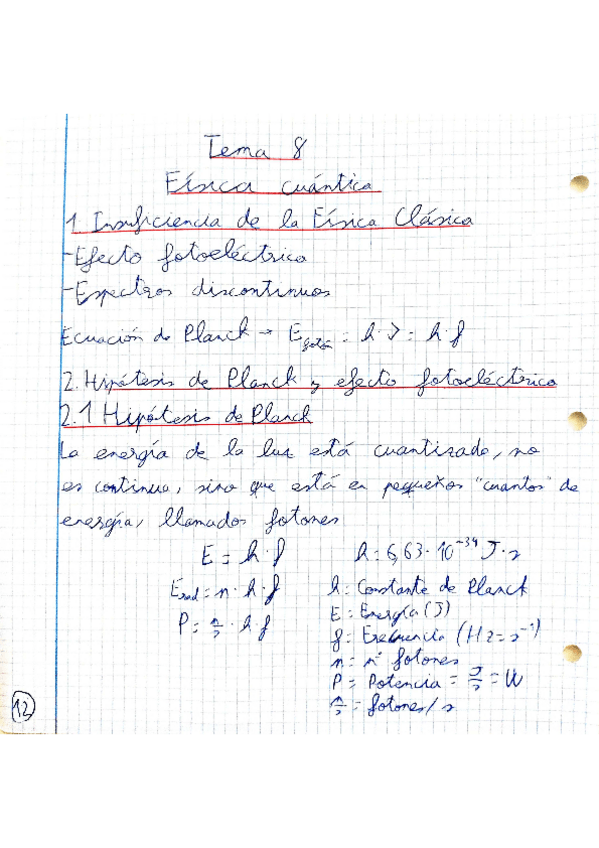 Tema 8
Física cuántica
1. Insuficiencia de la Física Clásica
-Efecto fotoeléctrico
-Espectros discontinuos
Ecuación de Planck → E_fotón = h·ν = h·f
2. Hipótesis de Planck y efecto fotoeléctrico
2.1 Hipótesis de Planck
La energía de la luz está cuantizada, no
es continua, sino que está en pequeños "cuantos" de
energía, llamados fotones
E = h·f
h = 6,63·10⁻³⁴ J·s
E_rad = n·h·f
h: Constante de Planck
E = Energía (J)
P = n/s · h·f
f = Frecuencia (Hz = s⁻¹)
n = nº fotones
P = Potencia = J/s = W
n/s = fotones/s
12